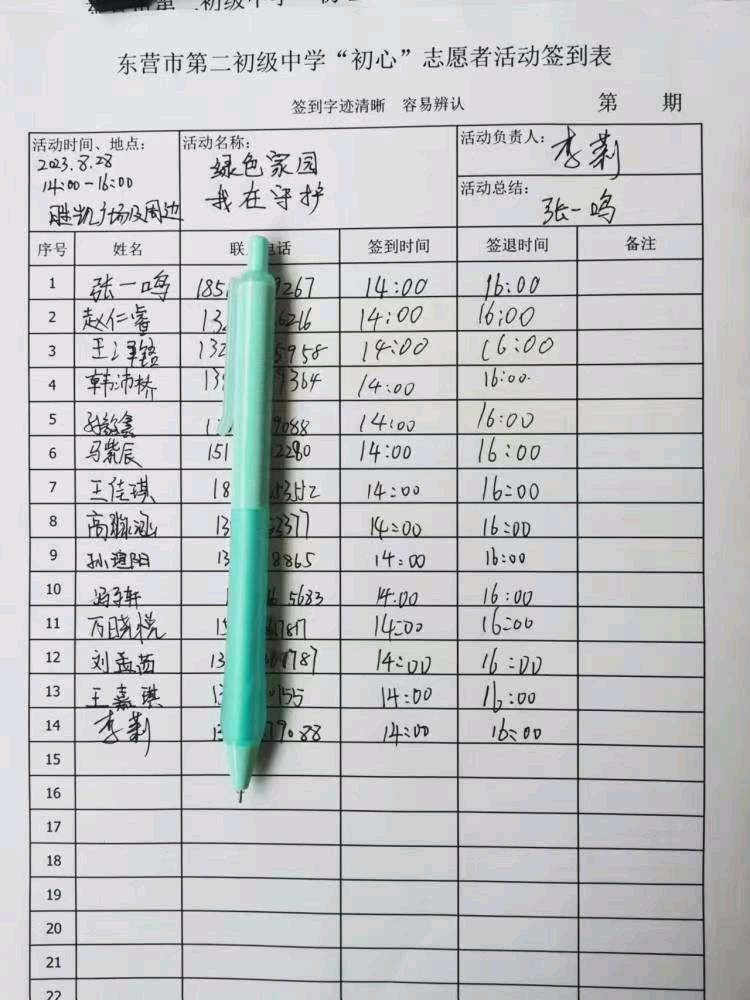 初级中学
东营市第二初级中学“初心”志愿者活动签到表
签到字迹清晰 容易辨认 第 期
活动时间、地点：
2023.8.28
14:00-16:00
胜凯广场及周边
活动名称：
绿色家园
我在守护
活动负责人：
李莉
活动总结：
张一鸣
序号 姓名 联 电话 签到时间 签退时间 备注
1 张一鸣 185 9267 14:00 16:00
2 赵仁睿 132 6216 14:00 16:00
3 王 132 5958 14:00 16:00
4 韩沛桥 139 9364 14:00 16:00
5 9088 14:00 16:00
6 马紫辰 151 2280 14:00 16:00
7 王佳琪 18 53552 14:00 16:00
8 高 涵 13 2377 14:00 16:00
9 孙 阳 13 8865 14:00 16:00
10 冯子轩 5683 14:00 16:00
11 万晓悦 15 7817 14:00 16:00
12 刘孟茜 13 8787 14:00 16:00
13 王嘉琪 155 14:00 16:00
14 李莉 13 79088 14:00 16:00
15
16
17
18
19
20
21
22